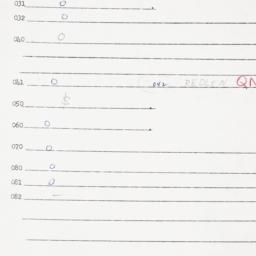 031 0
032 0
040 0
041 0 042 QN
050 $
060 0
070 0
080 0
081 0
082 —